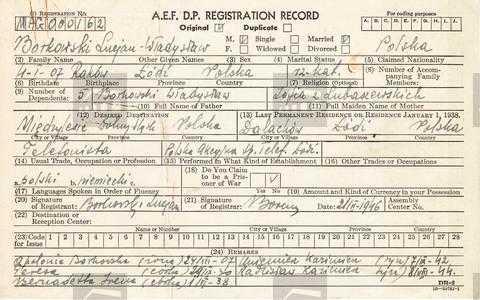 (1) REGISTRATION NO. A.E.F. D.P. REGISTRATION RECORD For coding purposes
MAG 000162 Original ☑ Duplicate ☐ A. B. C. D. E. F. G. H. I. J.
M. ☑ Single ☐ Married ☑
Borkowski Lucjan-Władysław F. ☐ Widowed ☐ Divorced ☐ Polska
(2) Family Name Other Given Names (3) Sex (4) Marital Status (5) Claimed Nationality
4-I-07 Łódź Polska rz-kat.
(6) Birthdate Birthplace Province Country (7) Religion (Optional) (8) Number of Accompanying Family Members:
(9) Number of Dependents: 5 Borkowski Władysław Zofia z
(10) Full Name of Father (11) Full Maiden Name of Mother
(12) DESIRED DESTINATION (13) LAST PERMANENT RESIDENCE OR RESIDENCE JANUARY 1, 1938.
Polska Łódź Polska
City or Village Province Country City or Village Province Country
Telefonista Polska Akcyjna Sp. Telef. Łódź
(14) Usual Trade, Occupation or Profession (15) Performed in What Kind of Establishment (16) Other Trades or Occupations
a. polski b. niemiecki c. (18) Do You Claim to be a Prisoner of War ☑
(17) Languages Spoken in Order of Fluency (19) Amount and Kind of Currency in your Possession
(20) Signature of Registrant: Borkowski Lucjan (21) Signature of Registrar: Date: 1946 Assembly Center No.
(22) Destination or Reception Center:
Name or Number City or Village Province Country
(23) Code for Issue 1 2 3 4 5 6 7 8 9 10 11 12 13 14 15 16 17 18 19 20 21 22 23 24 25 26 27 28
(24) REMARKS
Apolonia Borkowska (żona) Kazimierz (syn) 42
Teresa (córka) Kazimierz syn 44.
Bernadetta Irena (córka) 38 DPR-2
16—39781-1